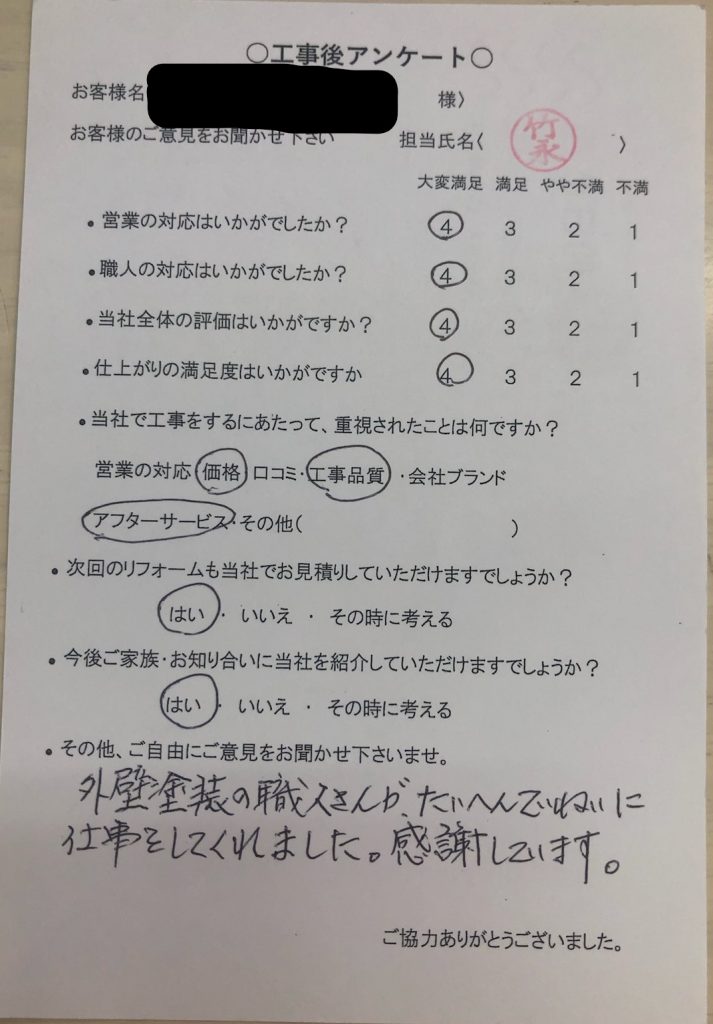 ○工事後アンケート○
お客様名 様〉
お客様のご意見をお聞かせ下さい 担当氏名〈 竹永 〉
大変満足 満足 やや不満 不満
・営業の対応はいかがでしたか？ 4 3 2 1
・職人の対応はいかがでしたか？ 4 3 2 1
・当社全体の評価はいかがですか？ 4 3 2 1
・仕上がりの満足度はいかがですか 4 3 2 1
・当社で工事をするにあたって、重視されたことは何ですか？
営業の対応・価格・口コミ・工事品質・会社ブランド
アフターサービス・その他( )
・次回のリフォームも当社でお見積りしていただけますでしょうか？
はい ・ いいえ ・ その時に考える
・今後ご家族・お知り合いに当社を紹介していただけますでしょうか？
はい ・ いいえ ・ その時に考える
・その他、ご自由にご意見をお聞かせ下さいませ。
外壁塗装の職人さんが、たいへんていねいに
仕事をしてくれました。感謝しています。
ご協力ありがとうございました。